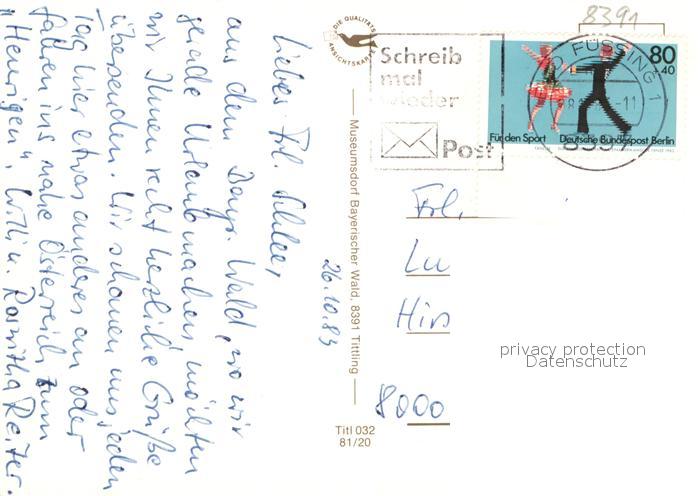 Liebes Frl. Schleer,
aus dem Bayr. Wald, wo wir
gerade Urlaub machen, möchten
wir Ihnen recht herzliche Grüße
übersenden. Wir schauen uns jeden
Tag hier etwas anderes an oder
fahren ins nahe Österreich zum
Heurigen. Willi u. Roswitha Reiter.
26.10.83
DIE QUALITÄTS
ANSICHTSKARTE
Museumsdorf Bayerischer Wald, 8391 Tittling
Titl 032
81/20
8391
Schreib
mal
wieder
Post
FÜSSING 1
-11
80
+40
Für den Sport Deutsche Bundespost Berlin
Frl.
Lu
Hirs
8000
privacy protection
Datenschutz